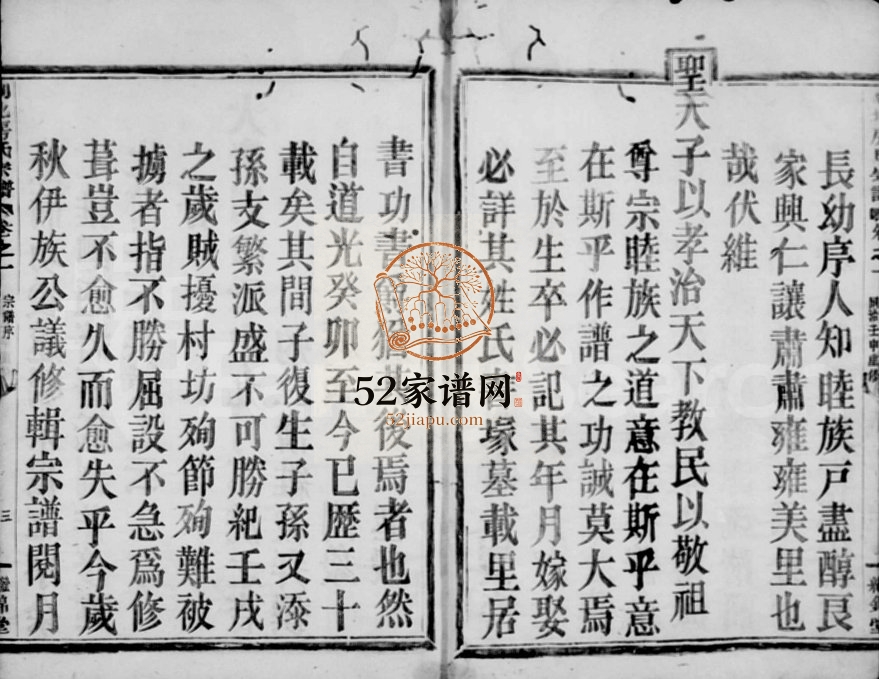 長幼序人知睦族戸盡醇良
家興仁讓肅肅雍雍美里也
哉伏維
聖天子以孝治天下教民以敬祖
尊宗睦族之道意在斯乎意
在斯乎作譜之功誠莫大焉
至於生卒必記其年月嫁娶
必詳其姓氏
塚墓載里居
書功書
後焉者也然
自道光癸卯至今已歷三十
載矣其間子復生子孫又添
孫支繁派盛不可勝紀壬戌
之歲賊擾村坊殉節殉難被
擄者指不勝屈設不急爲修
葺豈不愈久而愈失乎今歲
秋伊族公議修輯宗譜閱月
氏宗譜
卷之一
宗譜序
三
錦堂
52家谱网
52jiapu.com